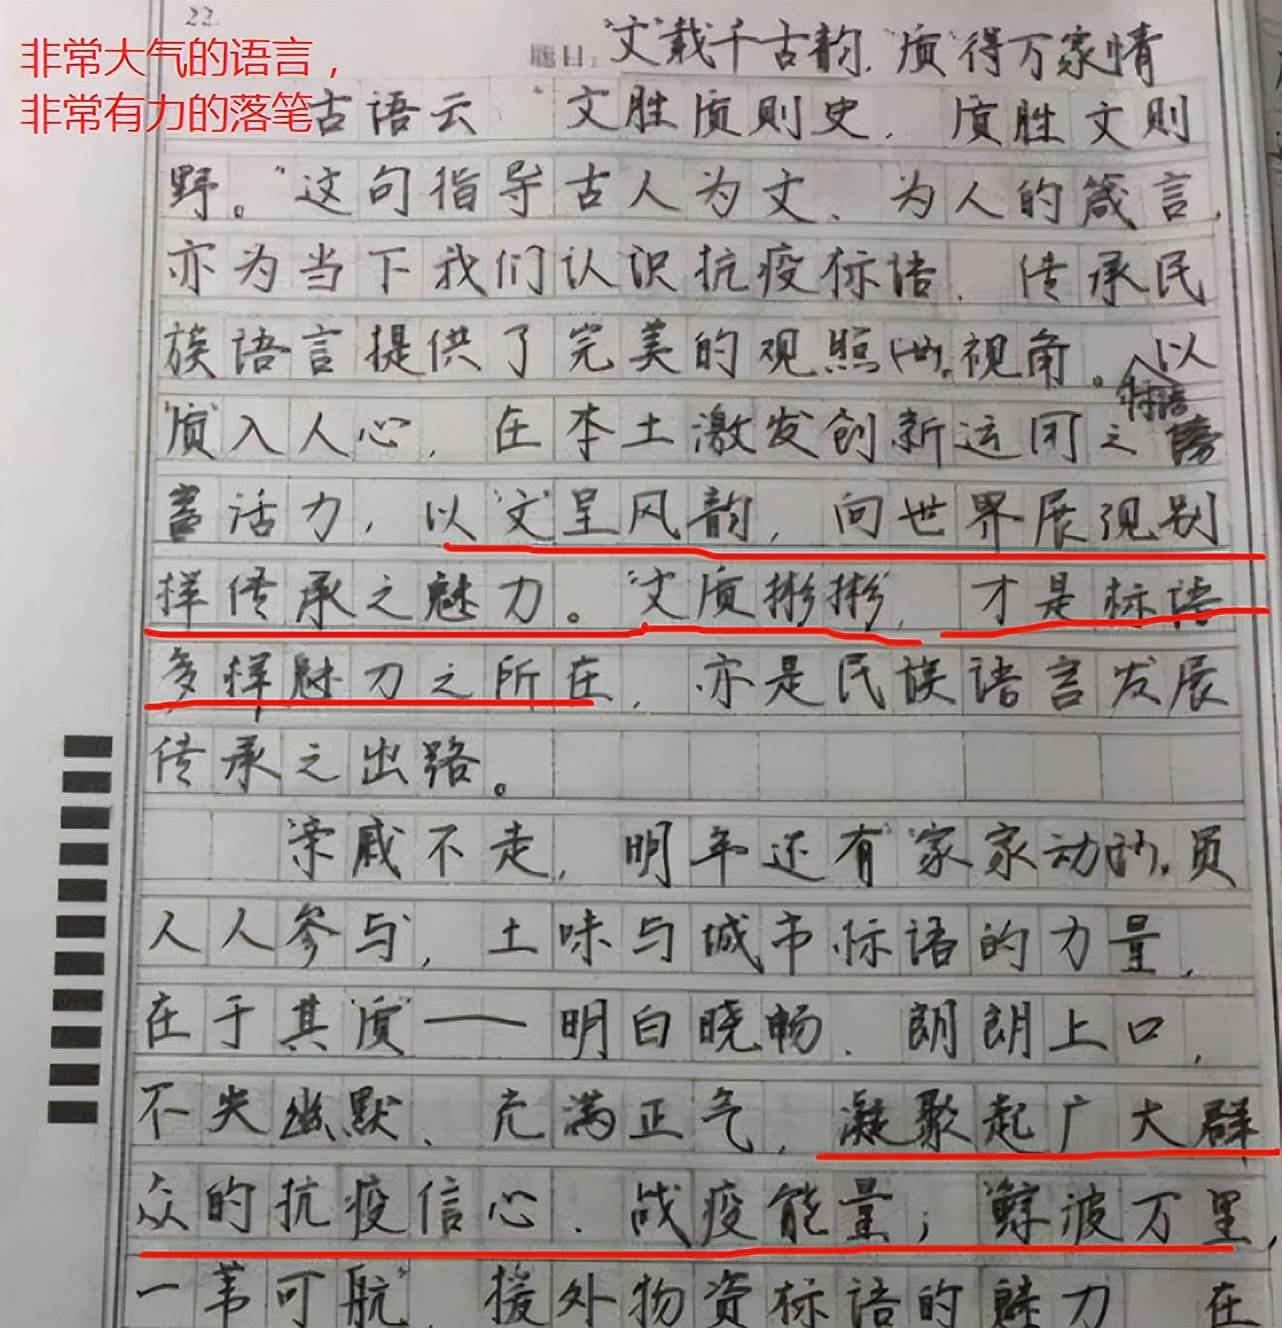 22
非常大气的语言，
非常有力的落笔
题目：“文”载千古韵，“质”得万家情
古语云“文胜质则史，质胜文则
野。”这句指导古人为文、为人的箴言，
亦为当下我们认识抗疫标语、传承民
族语言提供了完美的观照的视角。以
标语
“质”入人心，在本土激发创新运用之
言活力，以“文”呈风韵，向世界展现别
样传承之魅力。“文质彬彬”，才是标语
多样魅力之所在，亦是民族语言发展
传承之出路。
“亲戚不走，明年还有”“家家动员
人人参与”，土味与城市标语的力量，
在于其“质”——明白晓畅、朗朗上口，
不失幽默、充满正气，凝聚起广大群
众的抗疫信心、战疫能量；“鲸波万里，
一苇可航”，援外物资标语的魅力，在